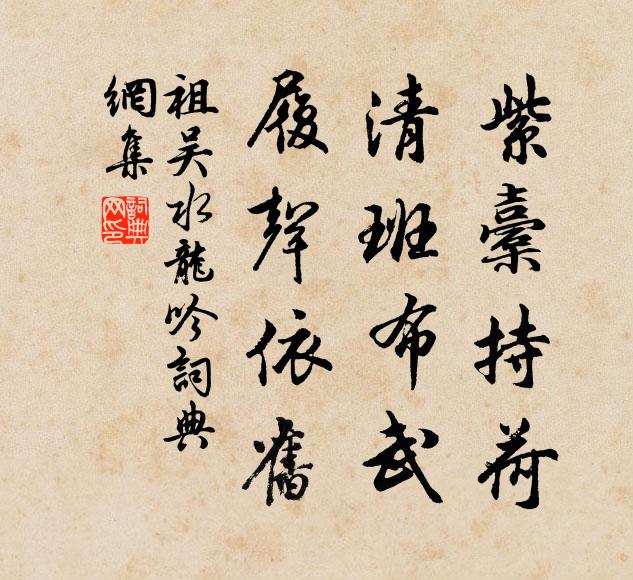 紫橐持荷
清班布武
履聲依舊
祖吴水龍吟詞典
網集
詞典
网印